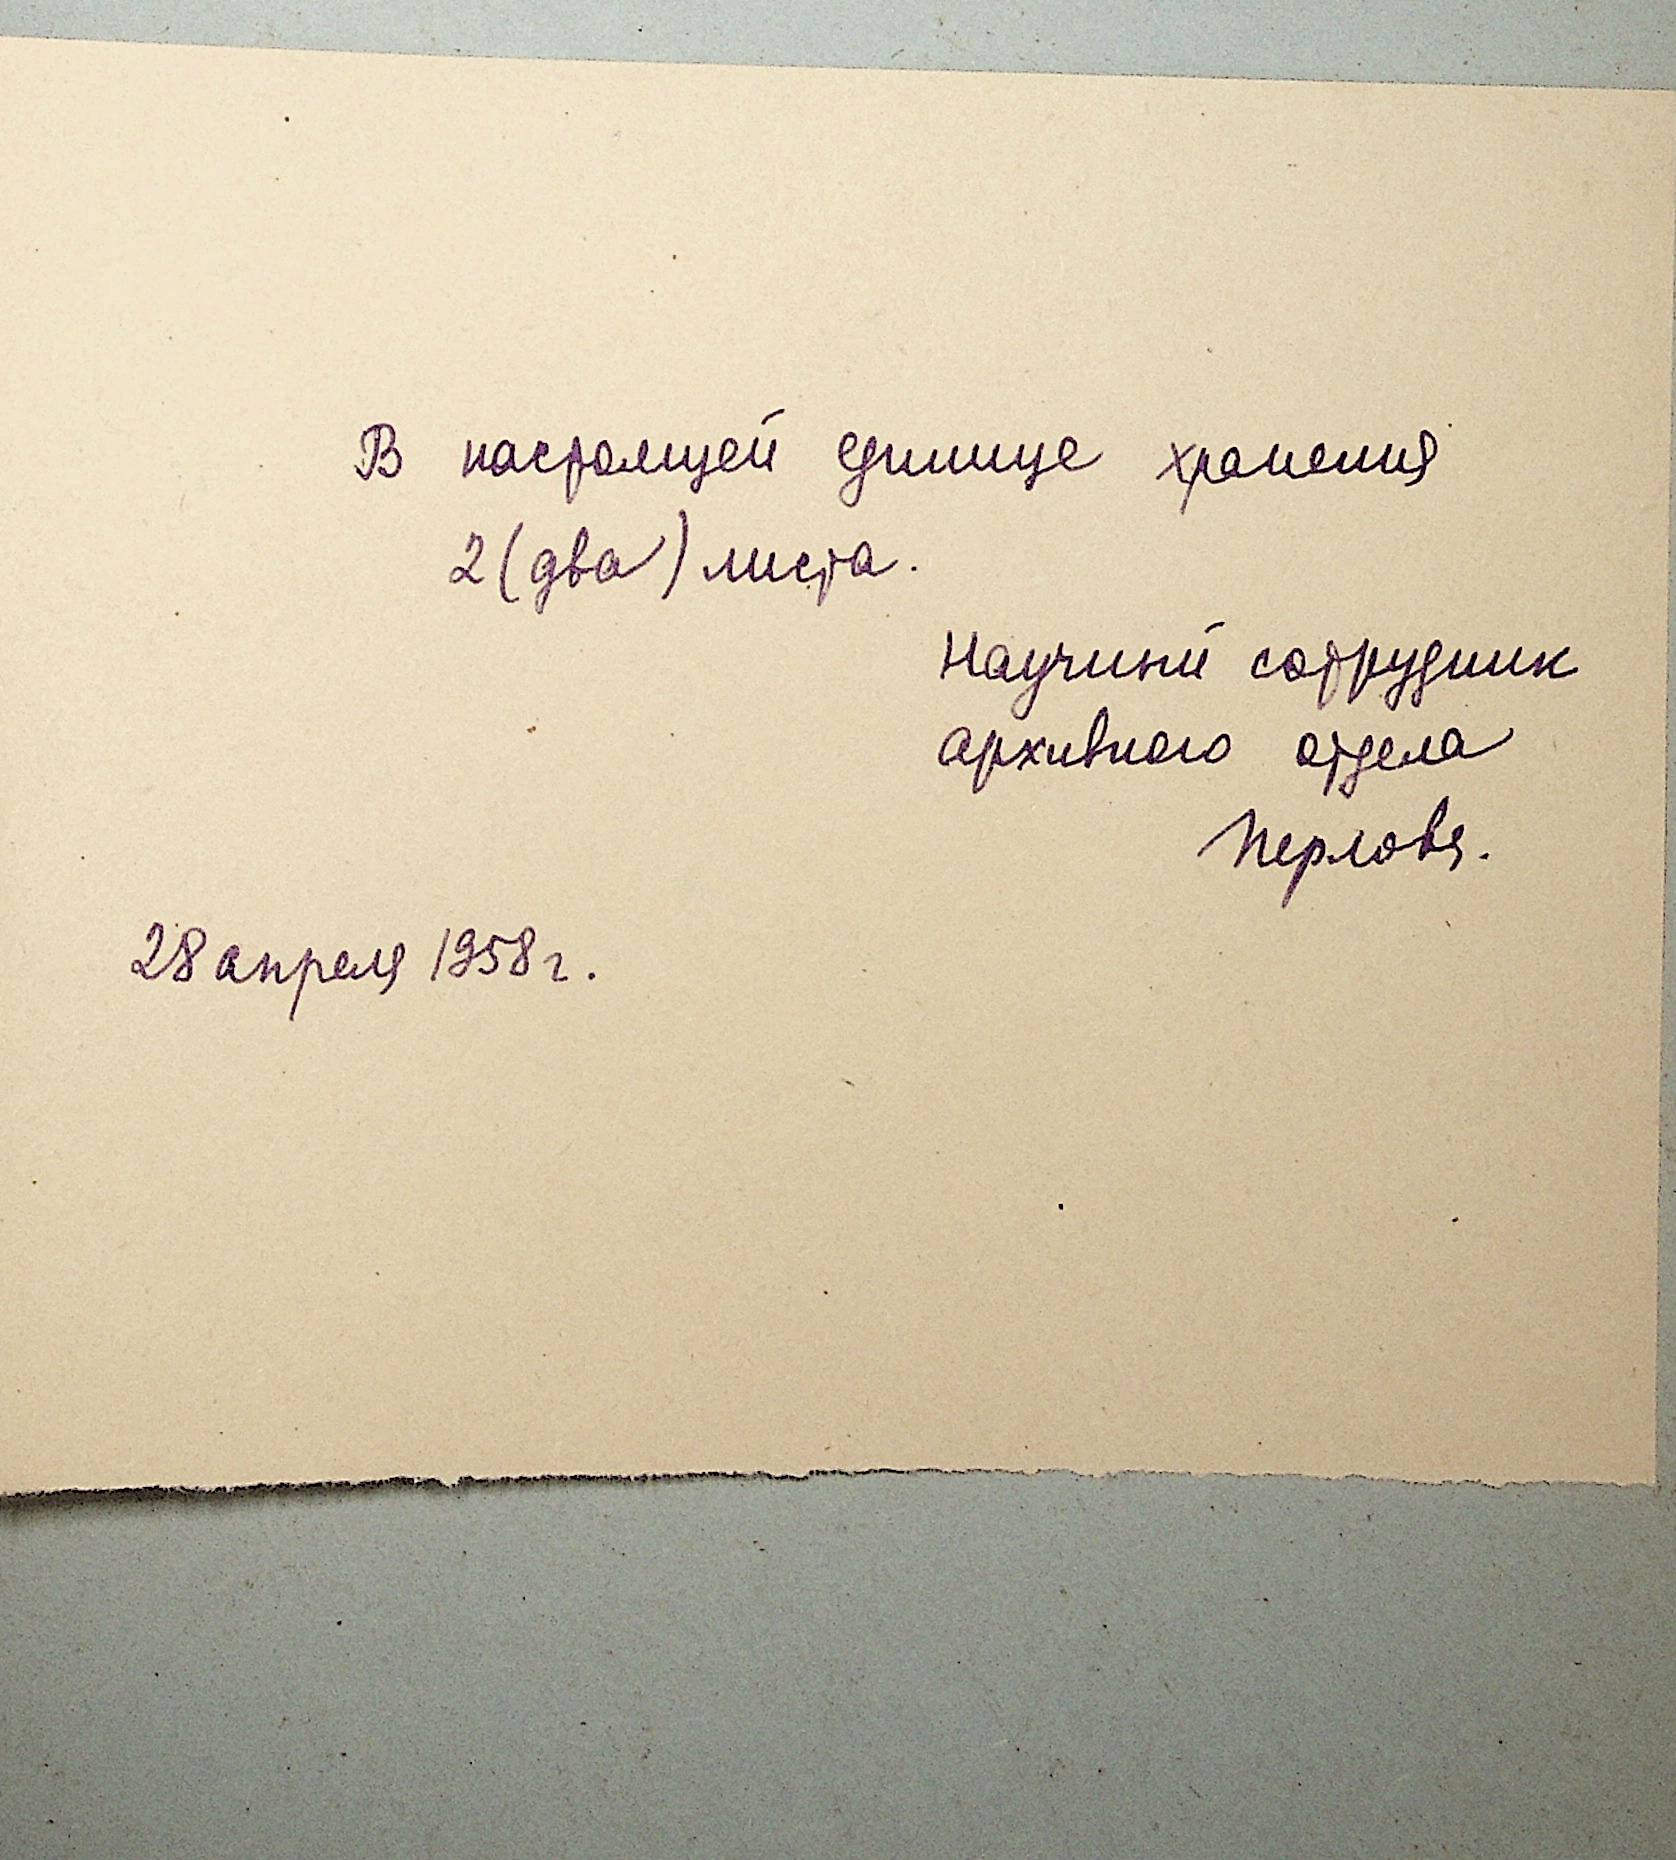 В настоящей единице хранения
2 (два) листа.
Научный сотрудник
архивного отдела
Перлова.
28 апреля 1958 г.